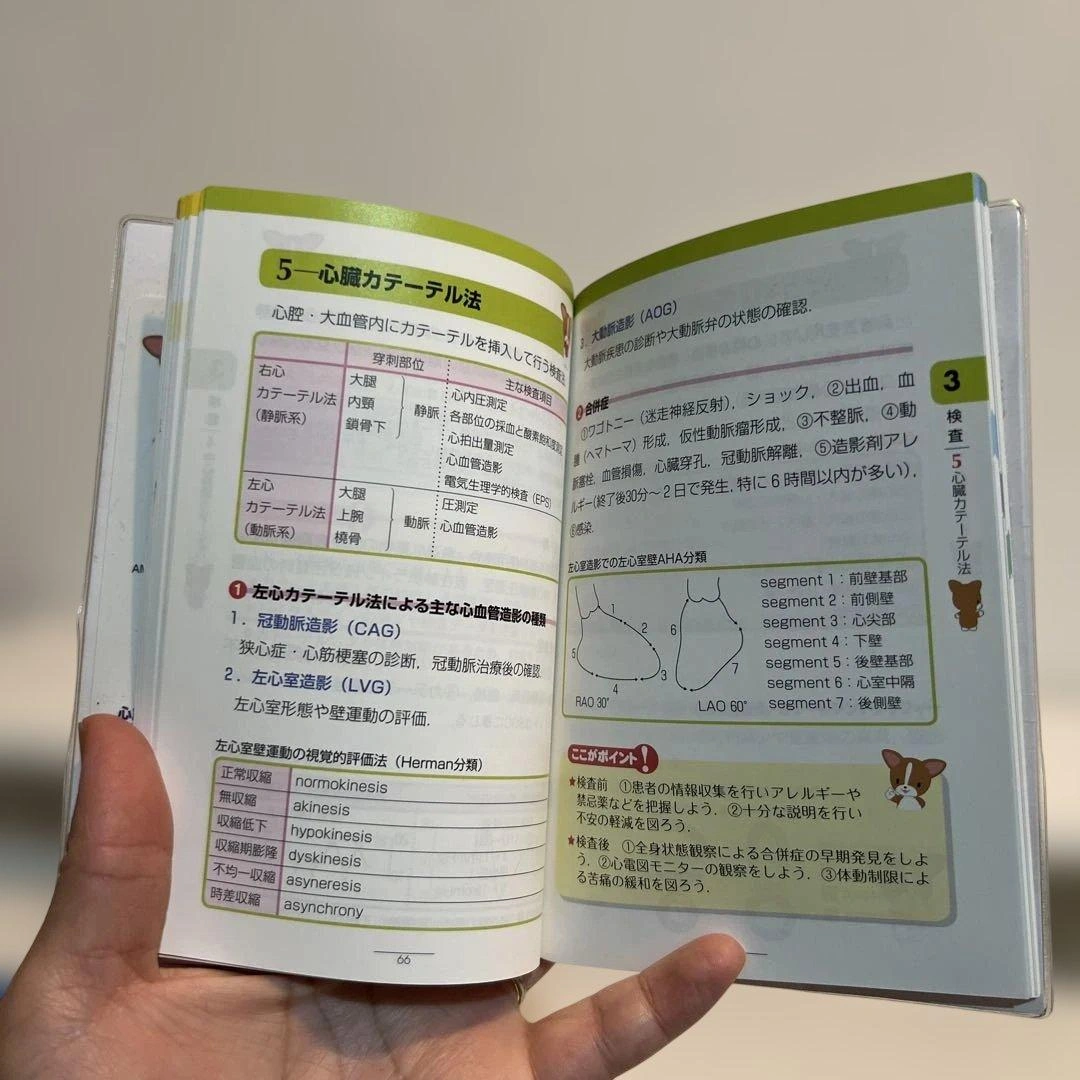 5―心臓カテーテル法
心腔・大血管内にカテーテルを挿入して行う検査
穿刺部位 主な検査項目
右心
カテーテル法
(静脈系)
大腿
内頸
鎖骨下
静脈
心内圧測定
各部位の採血と酸素飽和度測定
心拍出量測定
心血管造影
電気生理学的検査(EPS)
左心
カテーテル法
(動脈系)
大腿
上腕
橈骨
動脈
圧測定
心血管造影
❶ 左心カテーテル法による主な心血管造影の種類
1.冠動脈造影(CAG)
狭心症・心筋梗塞の診断,冠動脈治療後の確認.
2.左心室造影(LVG)
左心室形態や壁運動の評価.
左心室壁運動の視覚的評価法(Herman分類)
正常収縮 normokinesis
無収縮 akinesis
収縮低下 hypokinesis
収縮期膨隆 dyskinesis
不均一収縮 asyneresis
時差収縮 asynchrony
66
3.大動脈造影(AOG)
大動脈疾患の診断や大動脈弁の状態の確認.
❷ 合併症
①ワゴトニー(迷走神経反射),ショック,②出血,血
腫(ヘマトーマ)形成,仮性動脈瘤形成,③不整脈,④動
脈塞栓,血管損傷,心臓穿孔,冠動脈解離,⑤造影剤アレ
ルギー(終了後30分〜2日で発生,特に6時間以内が多い),
⑥感染.
左心室造影での左心室壁AHA分類
1
2
3
4
5
RAO 30°
6
7
LAO 60°
segment 1:前壁基部
segment 2:前側壁
segment 3:心尖部
segment 4:下壁
segment 5:後壁基部
segment 6:心室中隔
segment 7:後側壁
ここがポイント!
★検査前 ①患者の情報収集を行いアレルギーや
禁忌薬などを把握しよう.②十分な説明を行い
不安の軽減を図ろう.
★検査後 ①全身状態観察による合併症の早期発見をしよ
う.②心電図モニターの観察をしよう.③体動制限によ
る苦痛の緩和を図ろう.
3
検査
5 心臓カテーテル法